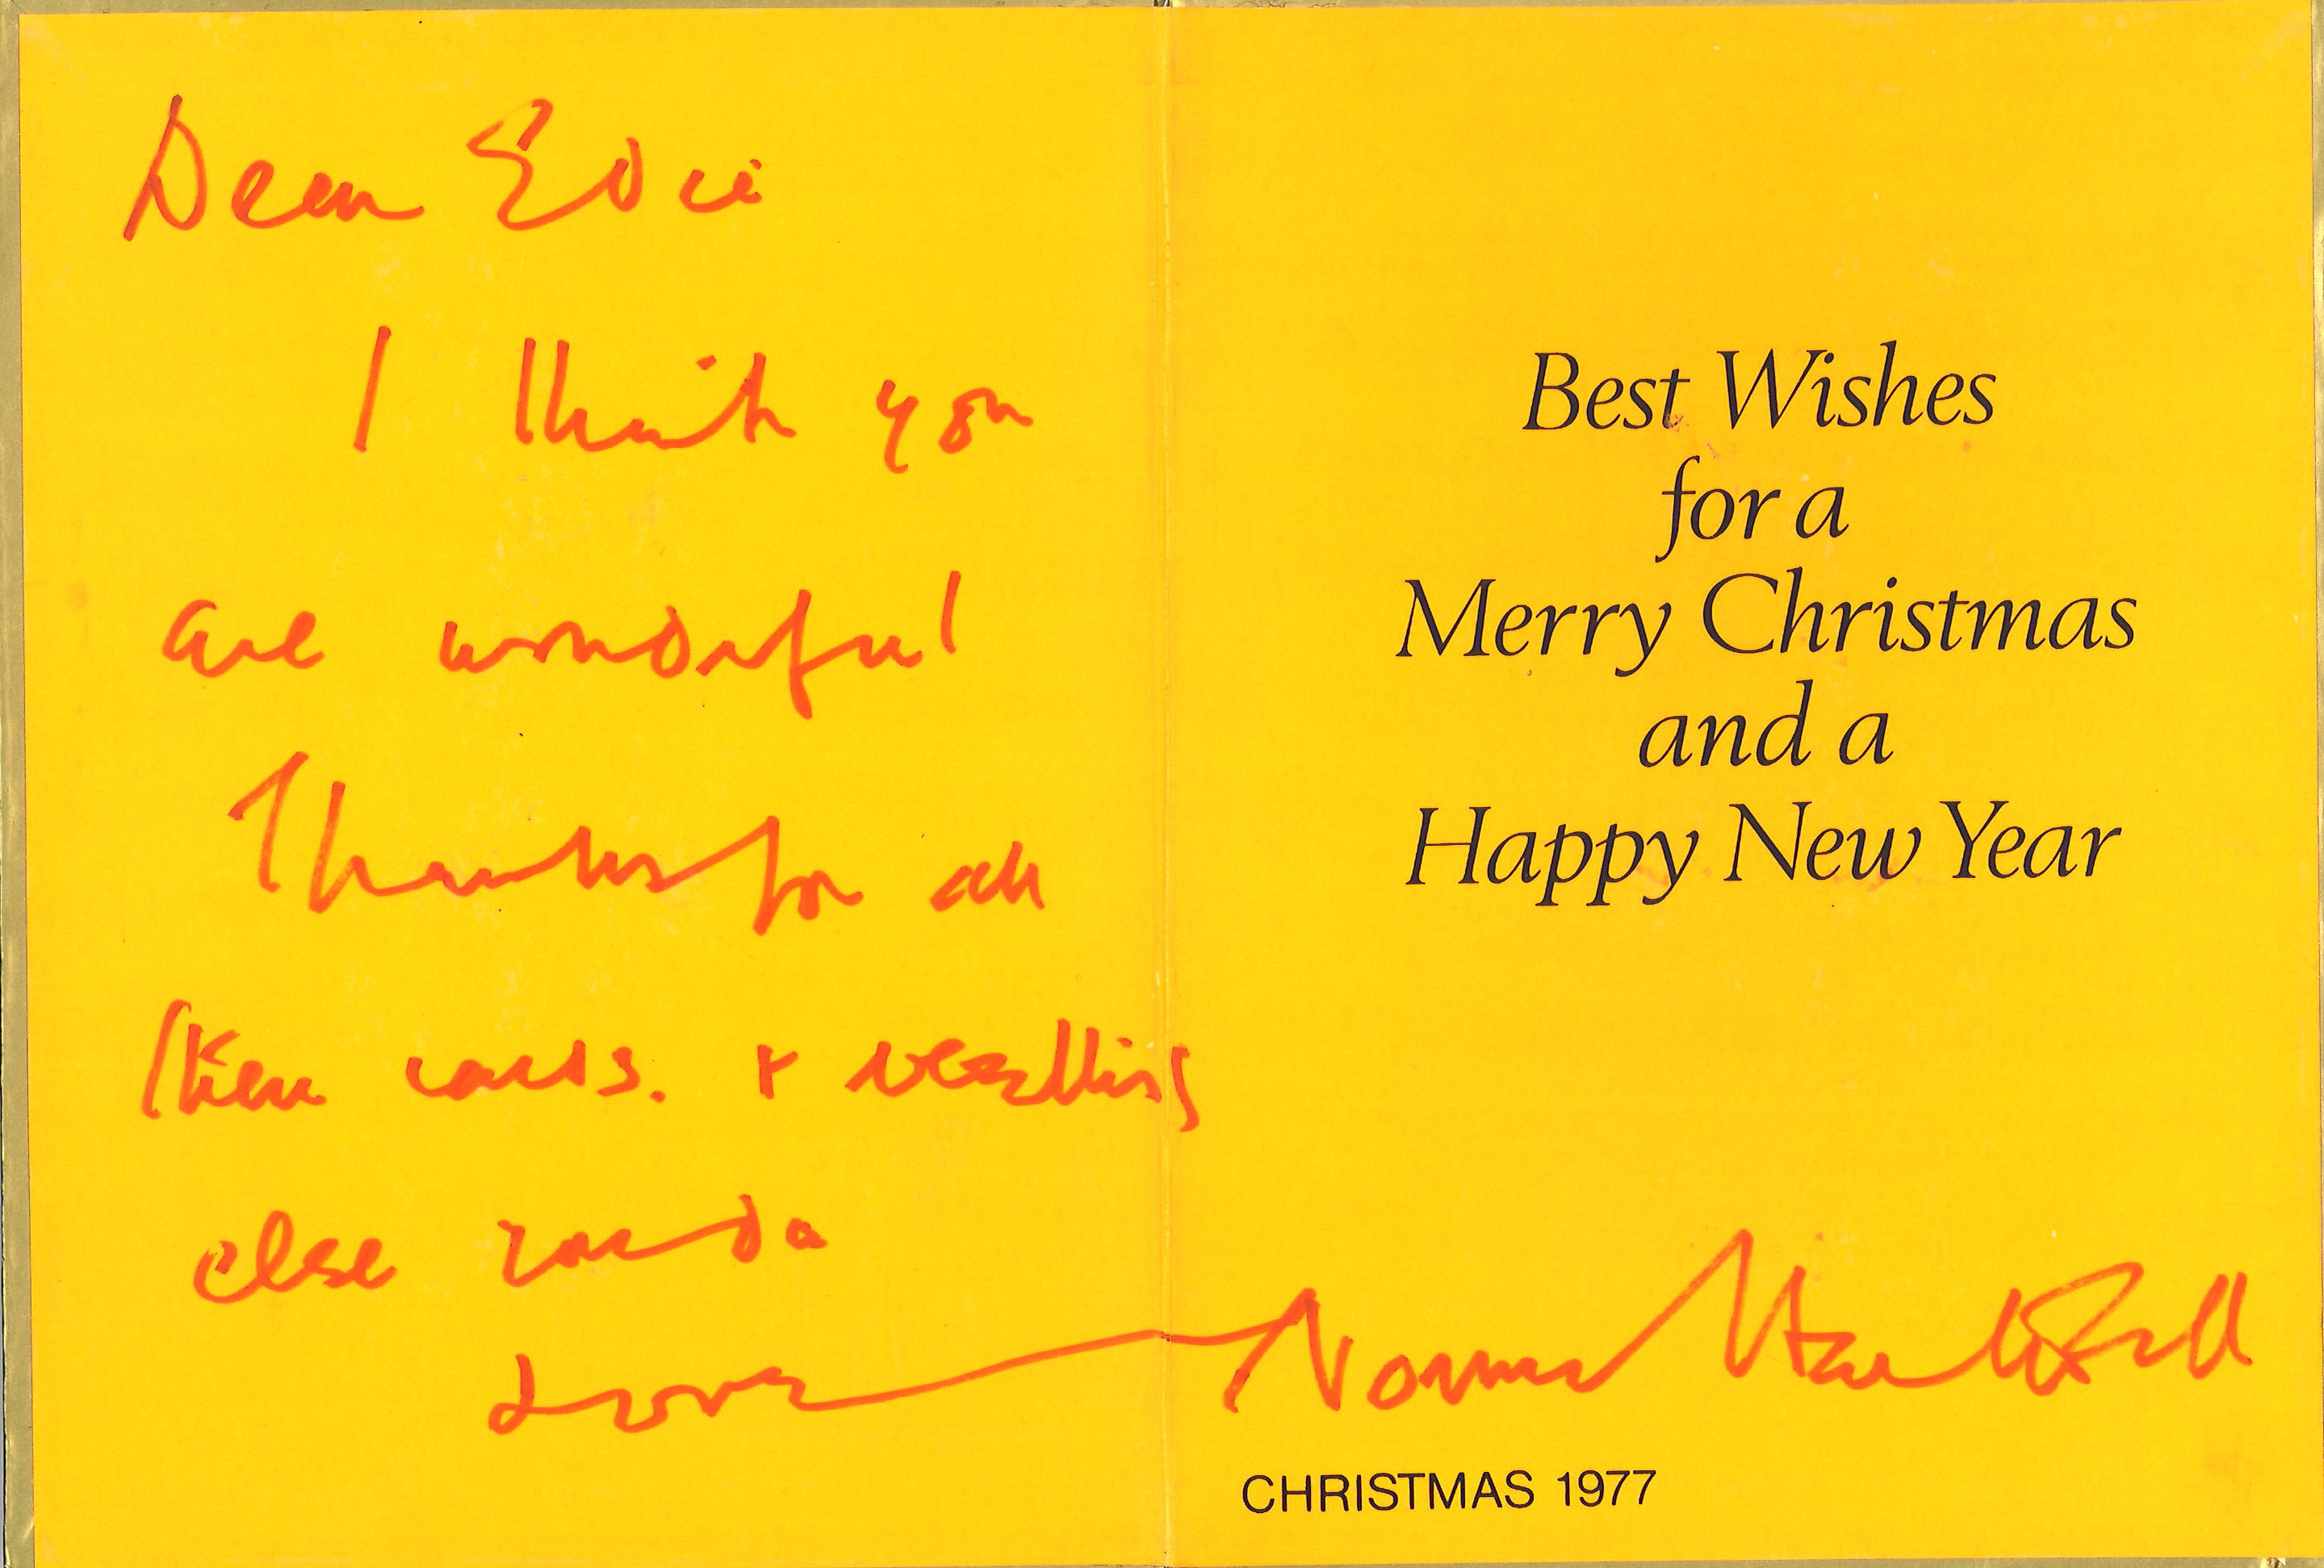 Dear Edie
I think you
are wonderful
Thanks for all
these cards. & everything
else you do
Love Norman
Best Wishes
for a
Merry Christmas
and a
Happy New Year
CHRISTMAS 1977